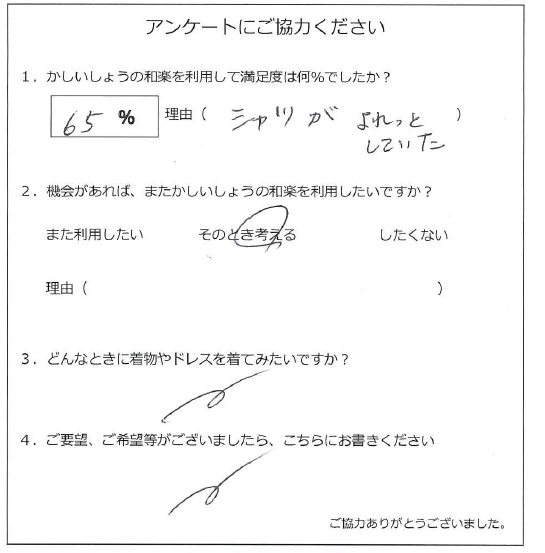 アンケートにご協力ください
1．かしいしょうの和楽を利用して満足度は何％でしたか？
65 % 理由（ シャツが よれっと ）
していた
2．機会があれば、またかしいしょうの和楽を利用したいですか？
また利用したい そのとき考える したくない
理由（ ）
3．どんなときに着物やドレスを着てみたいですか？
4．ご要望、ご希望等がございましたら、こちらにお書きください
ご協力ありがとうございました。